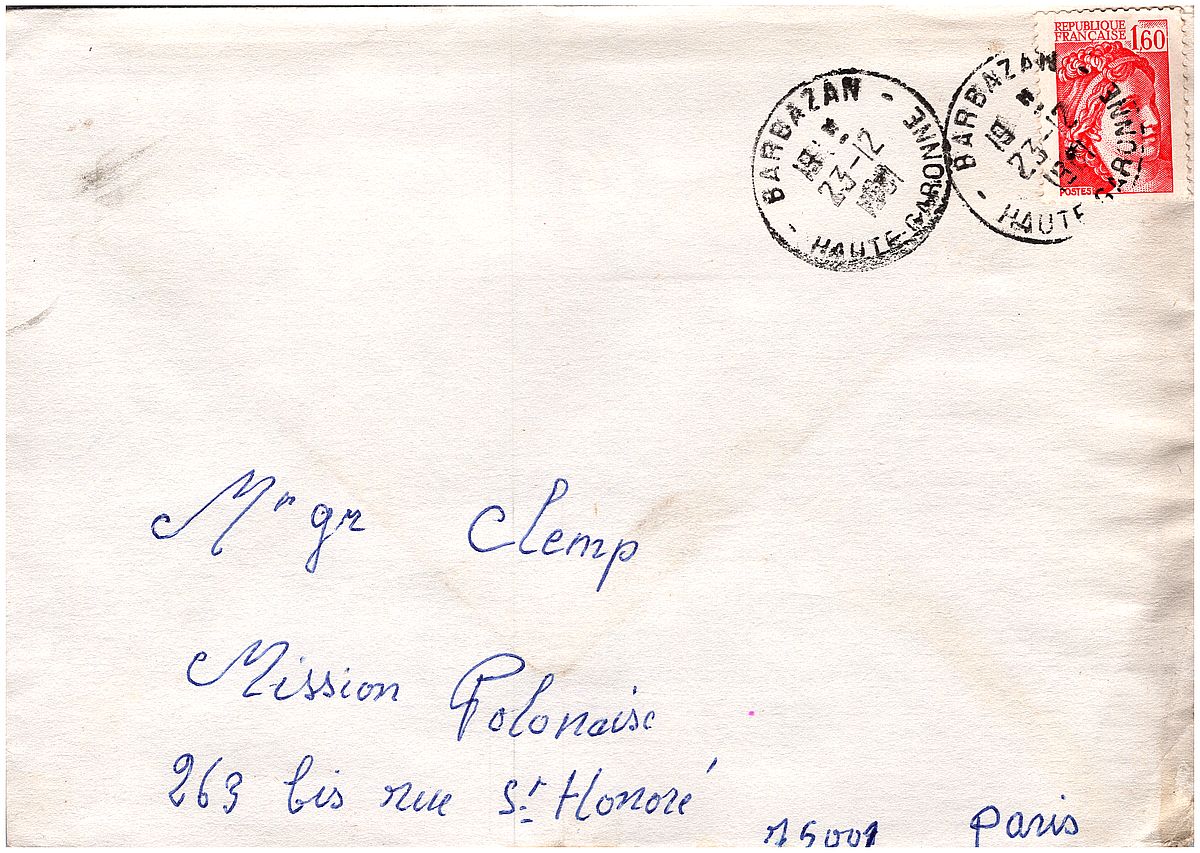 REPUBLIQUE
FRANÇAISE 1,60
POSTES
BARBAZAN - HAUTE-GARONNE -
23-12
BARBAZAN - HAUTE-GARONNE -
23-12
Mr gr Clemp
Mission Polonaise
263 bis rue St Honoré
75001 Paris